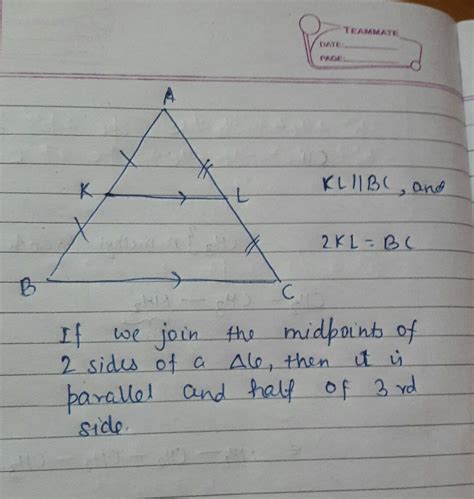 TEAMMATE
DATE:
PAGE:
A
K
L
KL||BC, and
2KL = BC
B
C
If we join the midpoints of
2 sides of a Δle, then it is
parallel and half of 3rd
side.